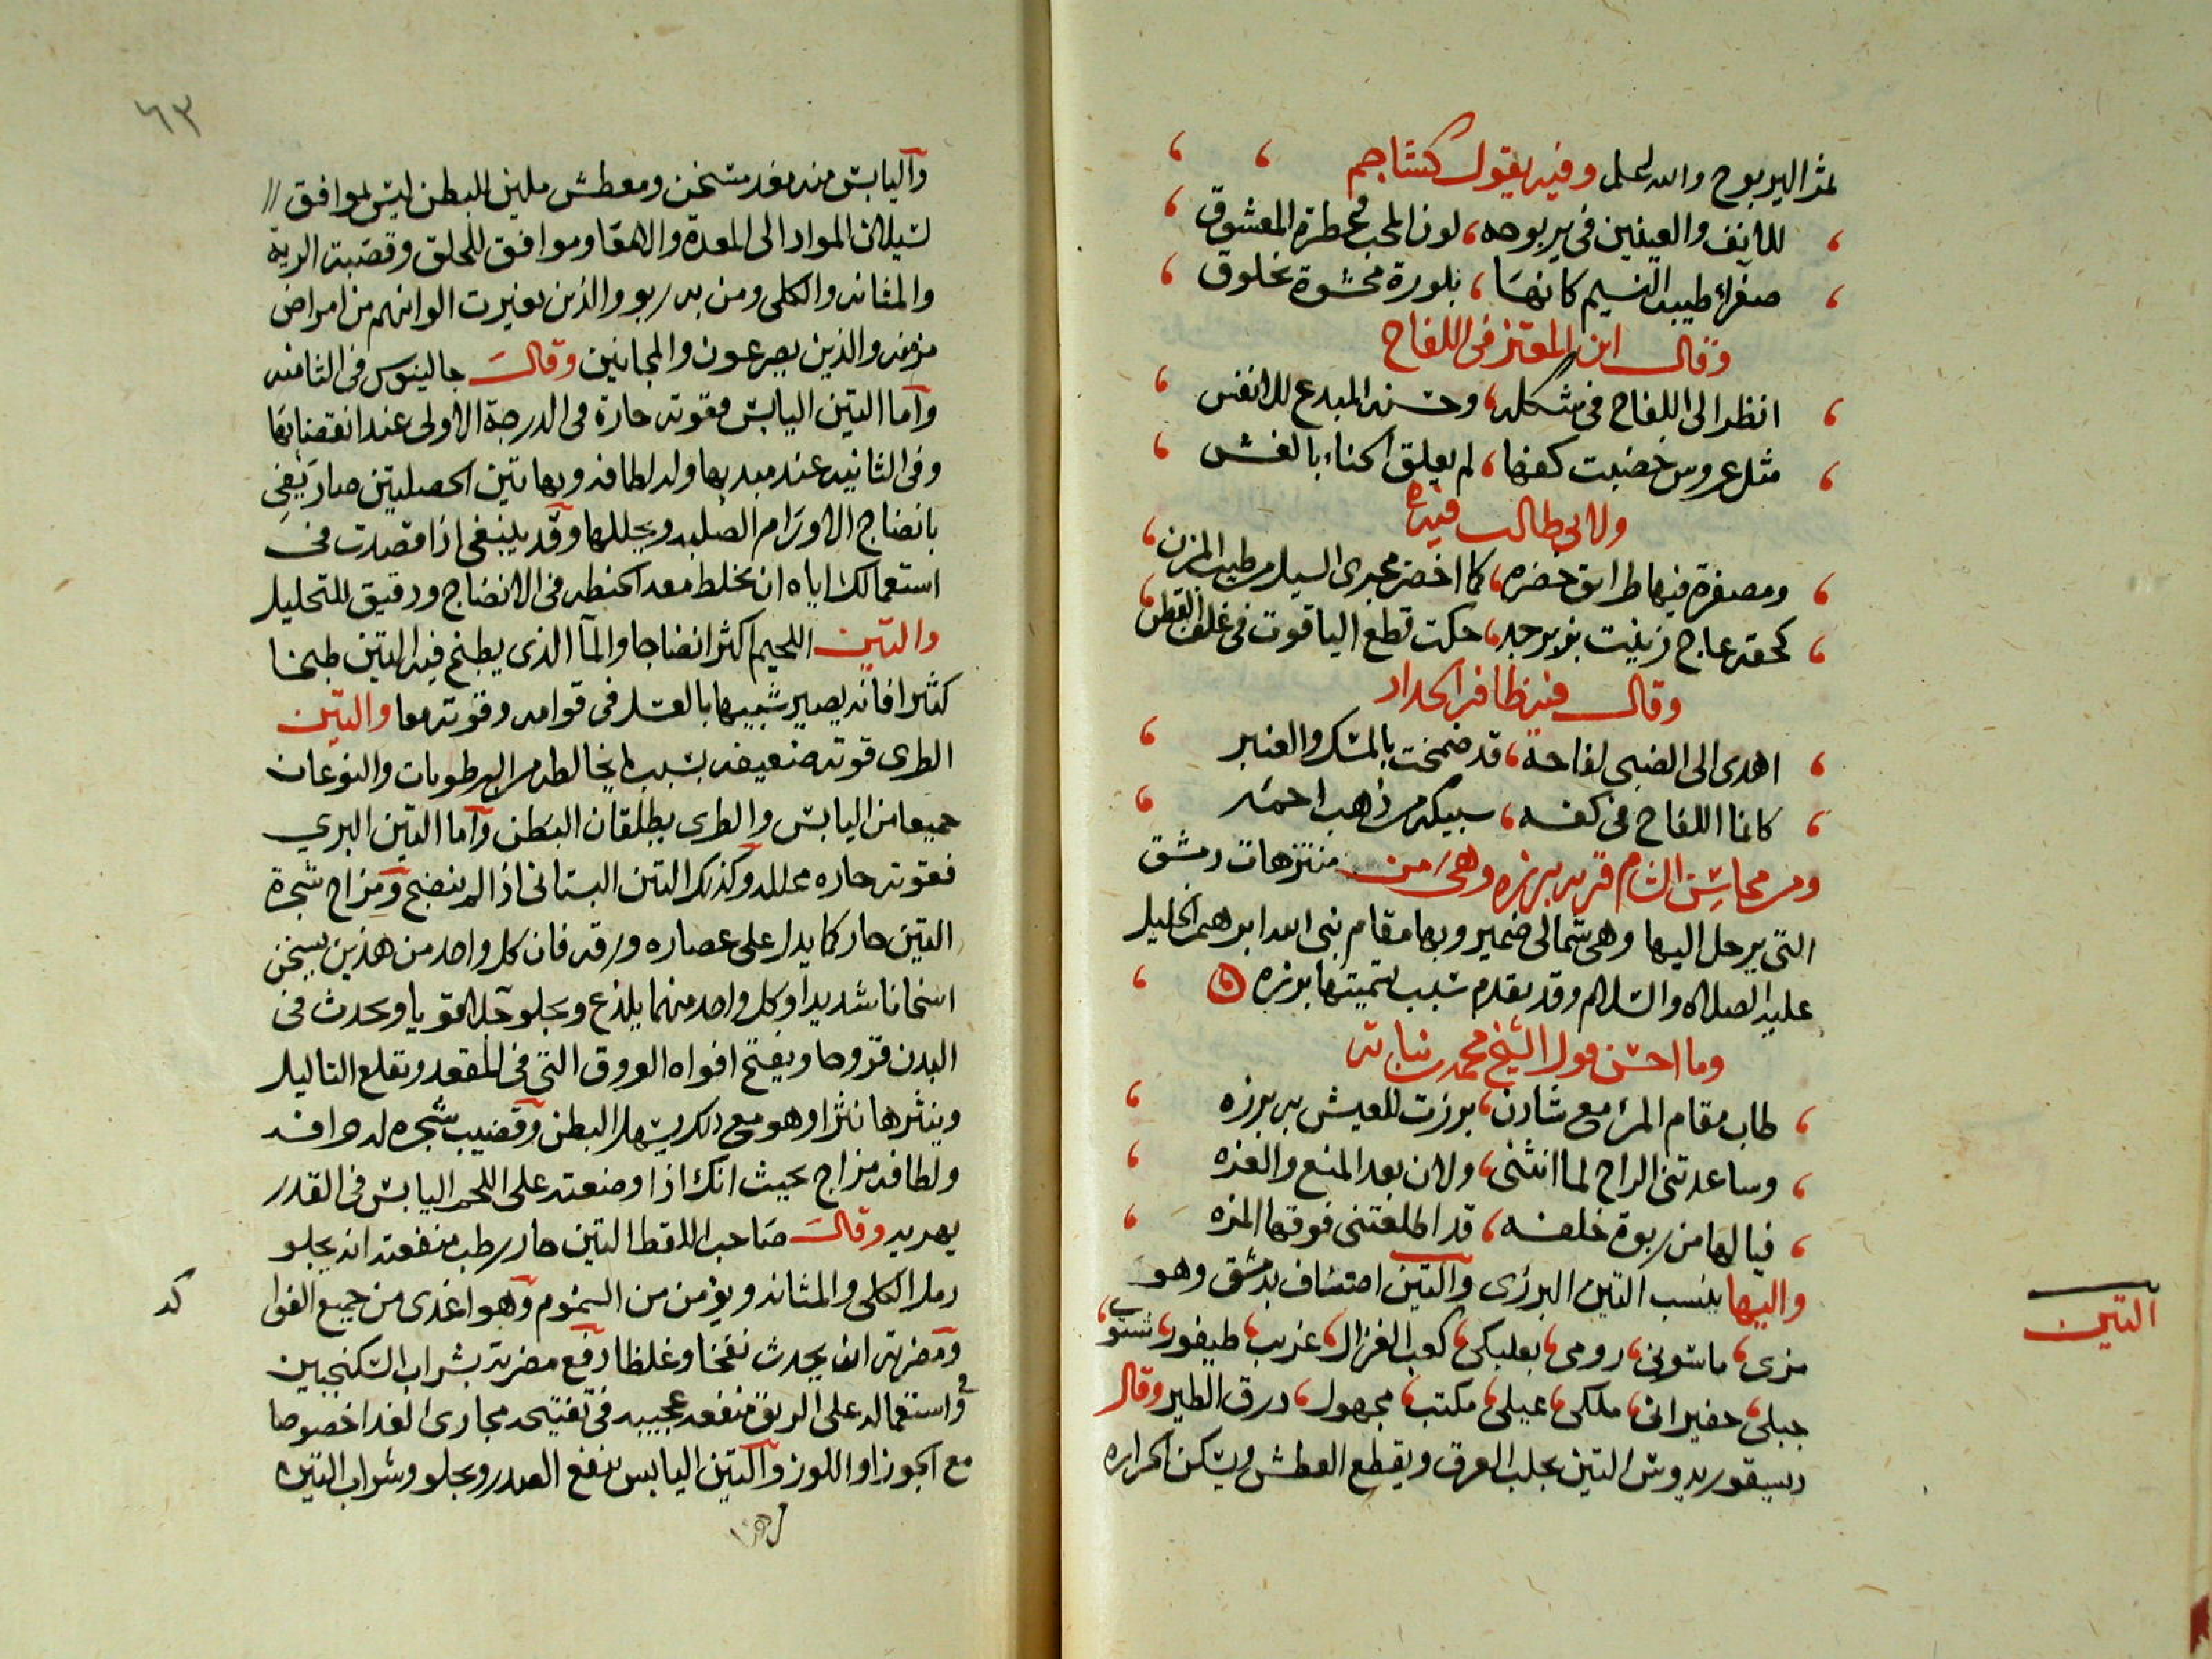 ثمر اليربوح والله اعلم وفيه يقول كشاجم
للانف والعينين في يربوحه، لون المحب وعطرة المعشوق
صفراء طيبة النسيم كانها، بلورة محشوة بخلوق
وقال ابن المعتز في اللفاح
انظر الى اللفاح في شكله، وحسنه المبدع للانفس
مثل عروس خضبت كفها، لم يعلق الحناء بالغش
ولابي طالب فيه
ومصفرة فيها طرائق خضره، كما اخضر مجرى السيل من طيب المزن
كحقة عاج زينت بزبرجد، حكت قطع الياقوت في غلف القطن
وقال فيه ظافر الحداد
اهدى الى الضبي لفاحة، قد ضمخت بالمسك والعنبر
كانما اللفاح في كفه، سبيكة من ذهب احمر
ومن محاسن الشام قريه برزه وهي من منتزهات دمشق
التي يرحل اليها وهي شمالي ضمير وبها مقام نبي الله ابرهيم الخليل
عليه الصلاه والسلام وقد تقدم سبب تسميتها برزه
وما احسن قول الشيخ محمد بن نباته
طاب مقام المرء مع شادن، برزت للعيش به برزه
وساعدتني الراح لما انثنى، ولان بعد المنع والعزه
فيالها من ربوة خلفه، قد اطلعتني فوقها المزه
واليها ينسب التين البرزي والتين اصناف بدمشق وهو
التين
مزي، ماسوني، رومي، بعلبكي، كعب الغزال، غريب، طيفور،
جبلي، حفيراني، ملكي، عيلي، مكتب، مجهول، درق الطير وقال
ديسقوريدوس التين يجلب العرق ويقطع العطش ويسكن الحراره
٦٣
واليابس منه مغد مسخن ومعطش ملين للبطن ليس بموافق
لسيلان المواد الى المعدة والامعا وموافق للحلق وقصبة الرية
والمثانه والكلى ومن به ربو والذين تغيرت الوانهم من امراض
مزمنه والذين يصرعون والمجانين وقال جالينوس في الثامنه
واما التين اليابس فقوته حارة في الدرجة الاولى عند انقضايها
وفي الثانيه عند مبديها وله لطافه وبهاتين الخصلتين صار يفي
بانضاج الاورام الصلبه ويحللها وقد ينبغي اذا قصدت في
استعمالك اياه ان تخلط معه الحنطه في الانضاج ودقيق للتحليل
والتين اللحيم اكثر انضاجا والمآ الذي يطبخ فيه التين طبخا
كثيرا فانه يصير شبيها بالعسل في قوامه وقوته معا والتين
الطري قوته ضعيفه بسبب ما يخالطه من الرطوبات والنوعان
جميعا من اليابس والطري يطلقان البطن واما التين البري
فقوته حاره محلله وكذلك التين البستاني اذا لم ينضج ومزاج شجرة
التين حار كما يدل على عصاره ورقه فان كل واحد من هذين يسخن
اسخانا شديدا وكل واحد منهما يلذع ويجلو جلا قويا ويحدث في
البدن قروحا ويفتح افواه العروق التي في المقعد ويقلع الثاليل
وينثرها نثرا وهو مع ذلك يسهل البطن وقضيب شجره له حرافه
ولطافه مزاج بحيث انك اذا وضعته على اللحم اليابس في القدر
يهريه وقال صاحب اللقط التين حار رطب منفعته انه يجلو
رمل الكلى والمثانه ويؤمن من السموم وهو اغدى من جميع الفوا
كه
ومضرته انه يحدث نفخا وغلظا دفع مضرته بشراب السكنجبين
واستعماله على الريق منفعه عجيبه في تفتيحه مجاري الغدا خصوصا
مع الجوز او اللوز والتين اليابس ينفع الصدر ويجلو وشراب التين